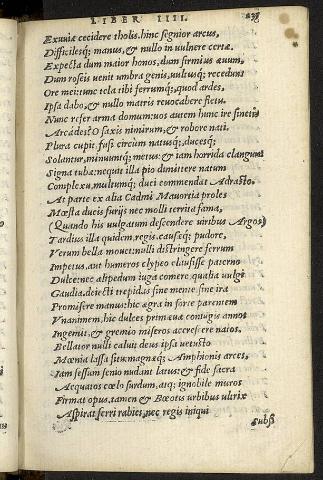 LIBER IIII.
Exuuiæ cecidere tholis. hinc segnior arcus,
Difficilesq; manus, & nullo in uulnere certæ.
Expecta dum maior honos, dum firmius æuum,
Dum roseis uenit umbra genis, uultusq; recedunt
Ore mei: tunc tela tibi ferrumq;, quod ardes,
Ipsa dabo, & nullo matris reuocabere fletu.
Nunc refer arma domum: uos autem hunc ire sinetis
Arcades? O saxis nimirum, & robore nati.
Plura cupit. fusi circum natusq;, ducesq;
Solantur, minuuntq; metus: & iam horrida clangunt
Signa tubæ: nequit illa pio dimittere natum
Complexu, multumq; duci commendat Adrasto.
At parte ex alia Cadmi Mauortia proles
Mœsta ducis furijs nec molli territa fama,
(Quando his uulgatum descendere uiribus Argos)
Tardius illa quidem, regis, causæq; pudore,
Verum bella mouet: nulli distringere ferrum
Impetus, aut humeros clypeo clausisse paterno
Dulce: nec alipedum iuga comere. qualia uulgi
Gaudia. deiecti trepidas sine mente sine ira
Promisere manus: hic ægra in sorte parentem
Vnanimem, hic dulces primæua coniugis annos
Ingemit, & gremio miseros accrescere natos.
Bellator nulli caluit deus: ipsa uetusto
Mœnia lassa situ magnæq; Amphionis arces,
Iam fessum senio nudant latus: & fide sacra
Aequatos cœlo surdum, atq; ignobile muros
Firmat opus. tamen & Bœotis urbibus ultrix
Aspirat ferri rabies, nec regis iniqui